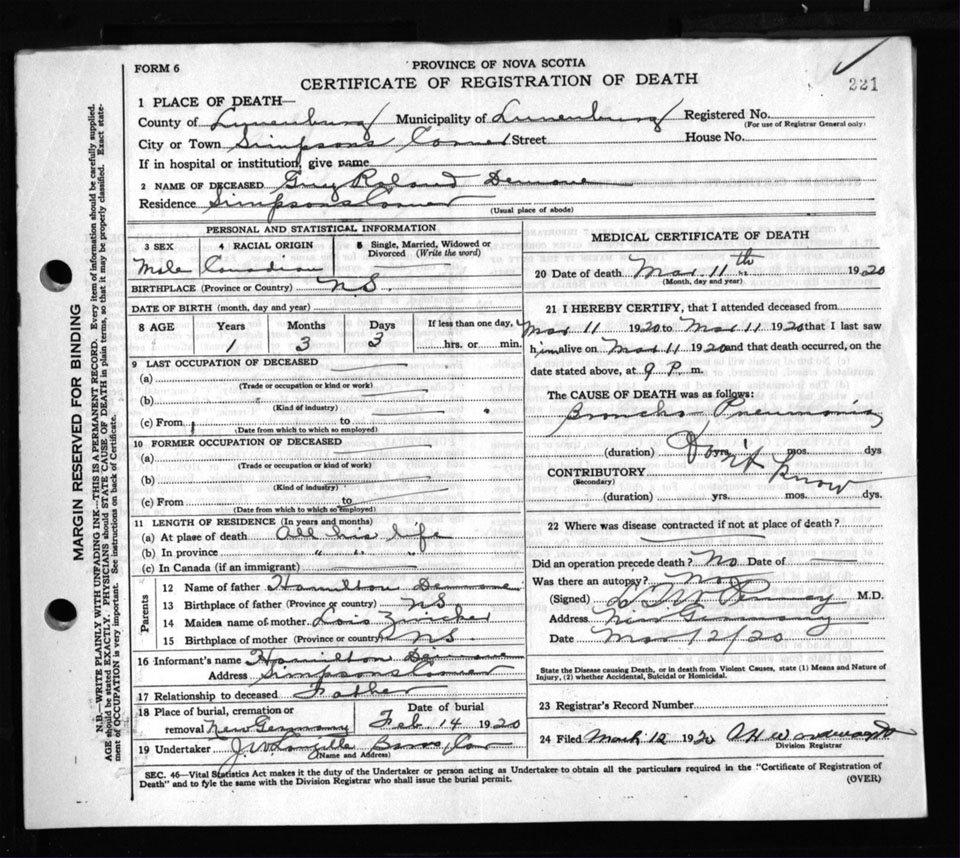 FORM 6
PROVINCE OF NOVA SCOTIA
221
CERTIFICATE OF REGISTRATION OF DEATH
1 PLACE OF DEATH—
County of Lunenburg Municipality of Lunenburg Registered No.
(For use of Registrar General only)
City or Town Simpsons Corner Street House No.
If in hospital or institution, give name
2 NAME OF DECEASED Guy Roland Demone
Residence Simpsons Corner
(Usual place of abode)
PERSONAL AND STATISTICAL INFORMATION
3 SEX 4 RACIAL ORIGIN 5 Single, Married, Widowed or
Divorced (Write the word)
Male Canadian
BIRTHPLACE (Province or Country) N.S.
DATE OF BIRTH (month, day and year)
8 AGE Years Months Days If less than one day,
1 3 3 hrs. or min.
9 LAST OCCUPATION OF DECEASED
(a)
(Trade or occupation or kind or work)
(b)
(Kind of industry)
(c) From to
(Date from which to which so employed)
10 FORMER OCCUPATION OF DECEASED
(a)
(Trade or occupation or kind of work)
(b)
(Kind of industry)
(c) From to
(Date from which to which so employed)
11 LENGTH OF RESIDENCE (In years and months)
(a) At place of death All his life
(b) In province " " "
(c) In Canada (if an immigrant)
Parents
12 Name of father Hamilton Demone
13 Birthplace of father (Province or country) N S
14 Maiden name of mother Lois Zwicker
15 Birthplace of mother (Province or country) N S.
16 Informant's name Hamilton Demone
Address Simpsons Corner
17 Relationship to deceased Father
18 Place of burial, cremation or Date of burial
removal New Germany Feb 14 1920
19 Undertaker J. V.
(Name and Address)
MEDICAL CERTIFICATE OF DEATH
20 Date of death Mar 11th 1920
(Month, day and year)
21 I HEREBY CERTIFY, that I attended deceased from
Mar 11 1920 to Mar 11 1920 that I last saw
him alive on Mar 11 1920 and that death occurred, on the
date stated above, at 9 P. m.
The CAUSE OF DEATH was as follows:
Broncho Pneumonia
(duration) yrs. mos. dys
Don't Know
CONTRIBUTORY
(Secondary)
(duration) yrs. mos. dys.
22 Where was disease contracted if not at place of death?
Did an operation precede death? No Date of
Was there an autopsy? No
(Signed) M.D.
Address New Germany
Date Mar 12/20
State the Disease causing Death, or in death from Violent Causes, state (1) Means and Nature of
Injury, (2) whether Accidental, Suicidal or Homicidal.
23 Registrar's Record Number
24 Filed March 12 1920
Division Registrar
SEC. 46—Vital Statistics Act makes it the duty of the Undertaker or person acting as Undertaker to obtain all the particulars required in the "Certificate of Registration of
Death" and to fyle the same with the Division Registrar who shall issue the burial permit.
(OVER)
MARGIN RESERVED FOR BINDING
N.B.—WRITE PLAINLY WITH UNFADING INK—THIS IS A PERMANENT RECORD. Every item of information should be carefully supplied.
AGE should be stated EXACTLY. PHYSICIANS should STATE CAUSE OF DEATH in plain terms, so that it may be properly classified. Exact state-
ment of OCCUPATION is very important. See instructions on back of Certificate.